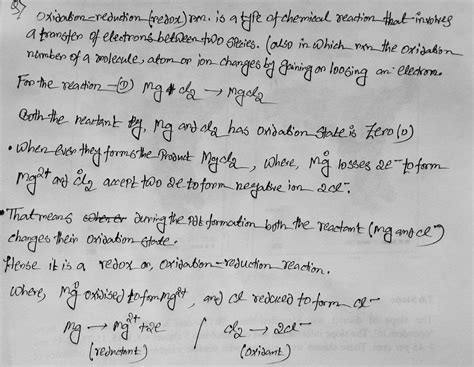 Q) Oxidation=reduction (redox) rxn. is a type of chemical reaction that involves
a transfer of electrons between two species. (also in which rxn the oxidation
number of a molecule, atom or ion changes by gaining or loosing an electron.
For the reaction - ① Mg + cl2 → Mgcl2
Both the reactant Mg, Mg and cl2 has oxidation state is Zero (0)
• When ever they forms the Product Mgcl2, where, Mg losses 2e⁻ to form
Mg²⁺ and cl2 accept two 2e to form negative ion 2cl⁻.
• That means during the Pdt formation both the reactant (Mg and cl⁻)
changes their oxidation state.
Hense it is a redox or, oxidation=reduction reaction.
where, Mg oxidised to form Mg²⁺, and cl reduced to form cl⁻
Mg → Mg²⁺ + 2e / cl2 → 2cl⁻
(reductant) (oxidant)